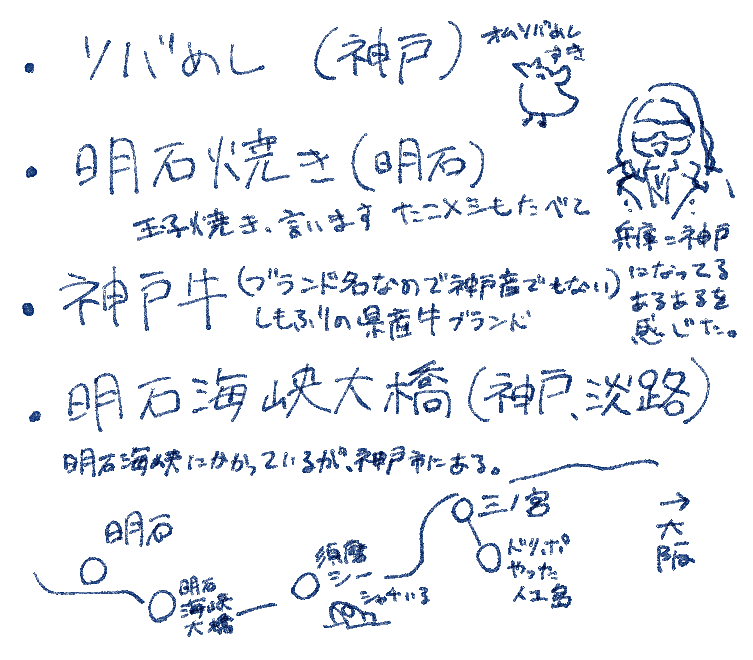 ・ソバめし（神戸）
オムソバめし
すき
・明石焼き（明石）
玉子焼き、言います たこメシもたべて
兵庫＝神戸
になってる
あるあるを
感じた。
・神戸牛（ブランド名なので神戸産でもない）
しもふりの県産牛ブランド
・明石海峡大橋（神戸、淡路）
明石海峡にかかっているが、神戸市にある。
明石
明石
海峡
大橋
須磨
シー
シャチいる
三ノ宮
ドリポ
やった
人工島
→
大
阪